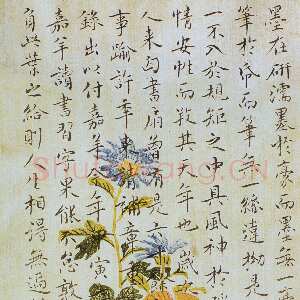 墨在研濡墨於豪而墨無一
筆於帋而筆無一絲違拗是
一不入於規矩之中具風神於
情安性而致其天年也歲
人来書扇曾有是
事踰許年有補
錄出以付嘉年寅
嘉讀書習字果能不怠敦
此業之給則人生相得無過